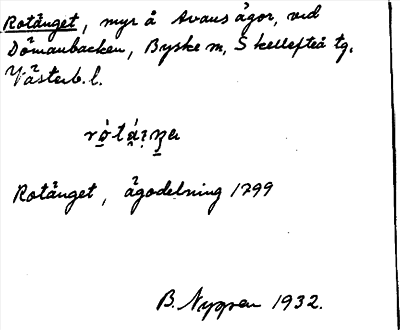 Rotånget, myr å Avans ägor, vid
Dömanbacken, Byske sn, Skellefteå tg.
Västerb. l.
Rotånget, ägodelning 1799
B. Nygren 1932.